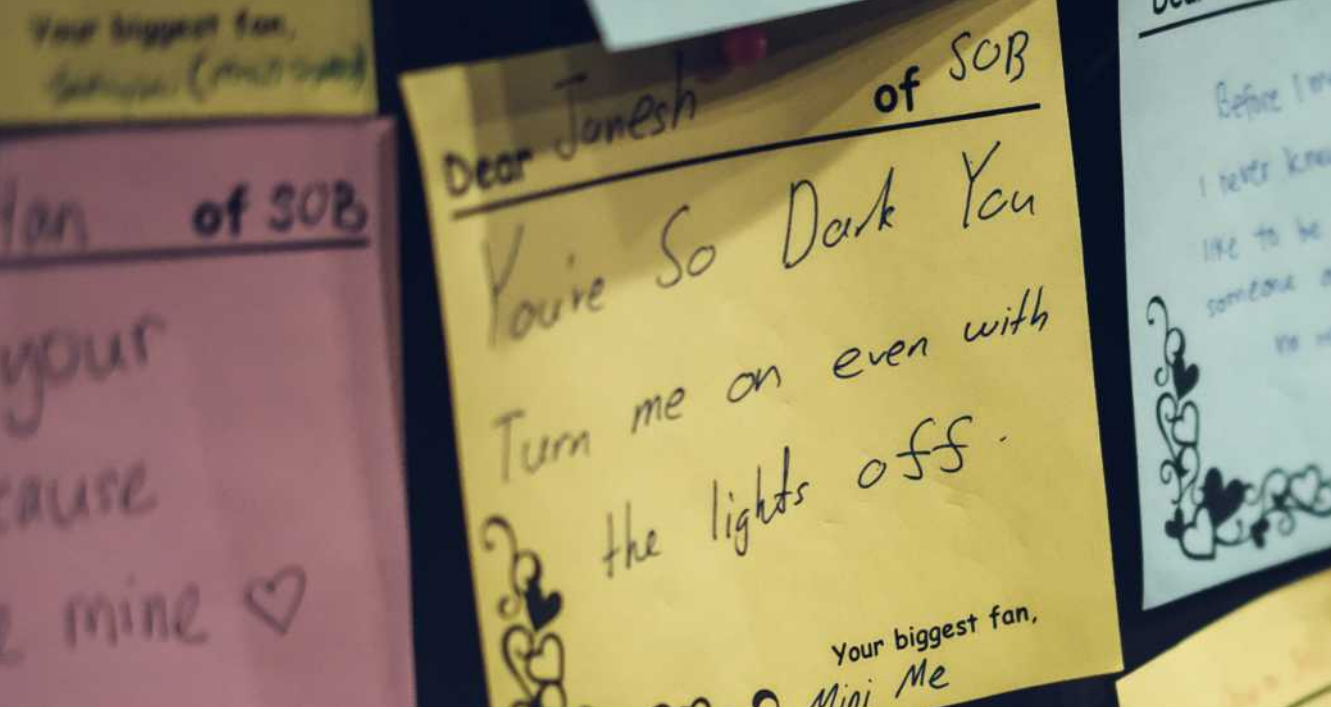 Your biggest fan,
Yan of SOB
your
cause
mine ♡
Dear Janesh of SOB
You're So Dark You
Turn me on even with
the lights off.
Your biggest fan,
Mini Me
Before I
I never
like to be
someone